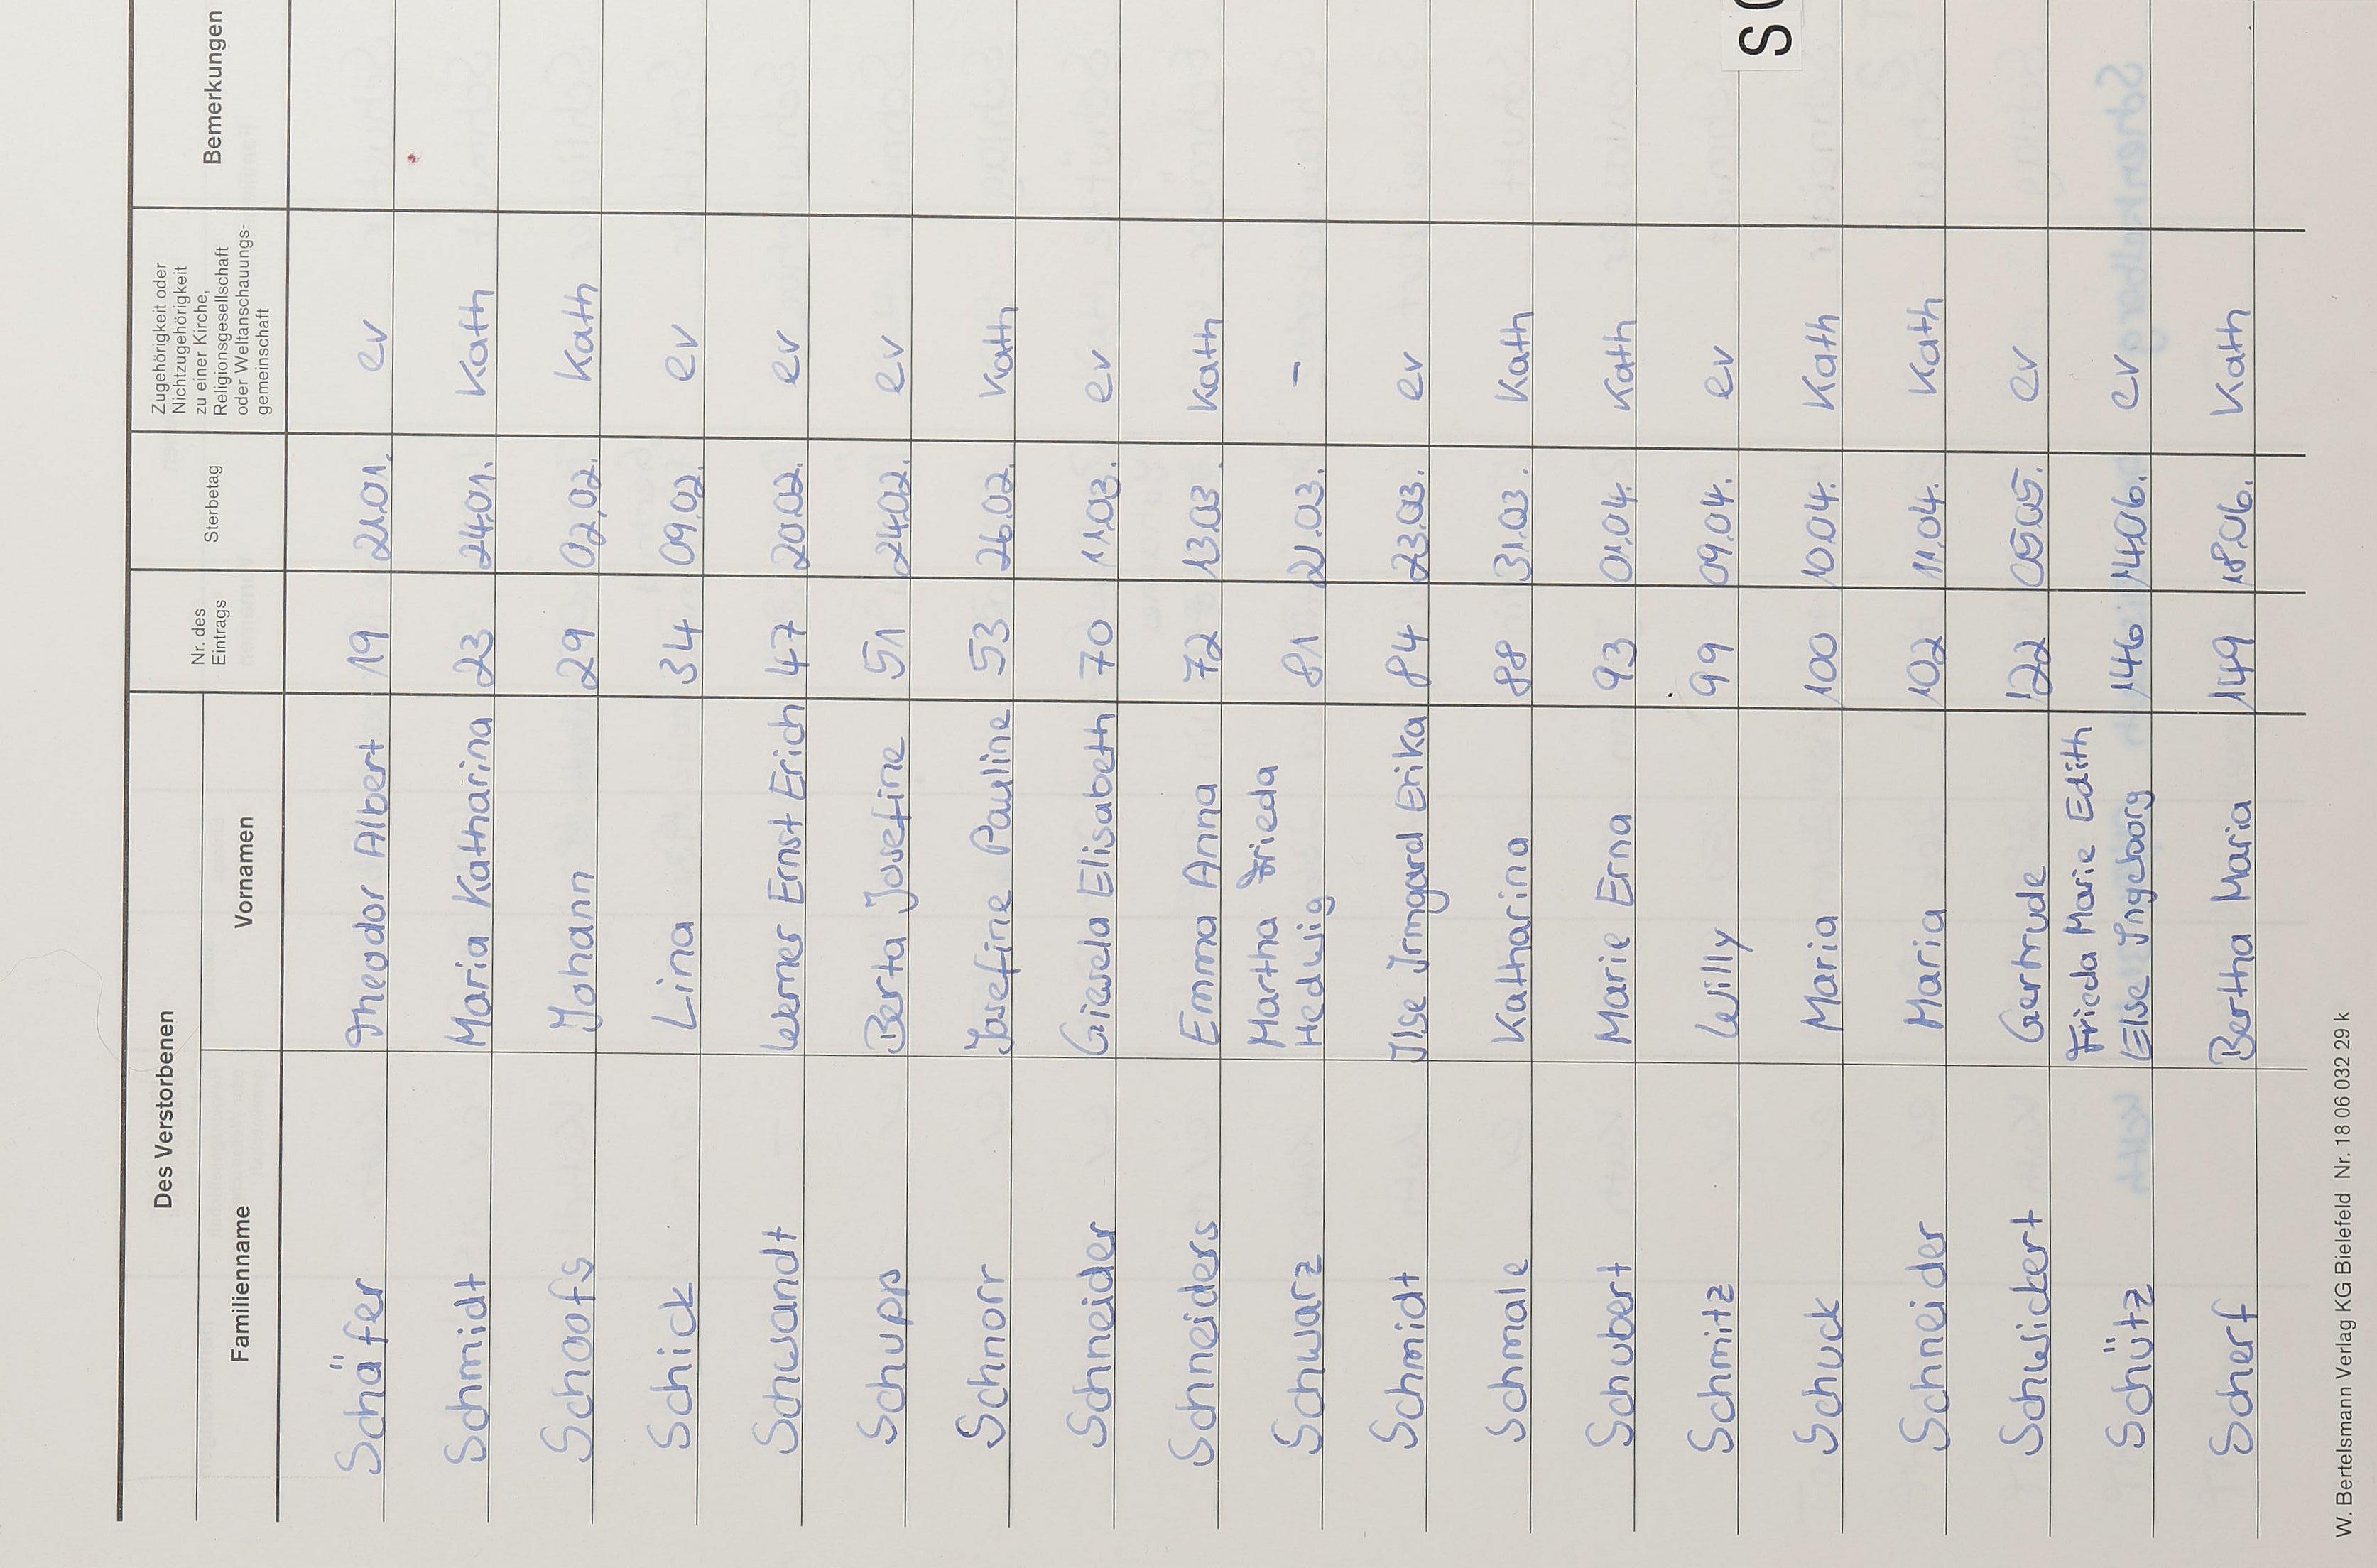 Des Verstorbenen
Familienname Vornamen Nr. des Eintrags Sterbetag Zugehörigkeit oder Nichtzugehörigkeit zu einer Kirche, Religionsgesellschaft oder Weltanschauungs-gemeinschaft Bemerkungen
Schäfer Theodor Albert 19 21.01. ev
Schmidt Maria Katharina 23 24.01. Kath
Schoofs Johann 29 02.02. Kath
Schick Lina 34 09.02. ev
Schwandt Werner Ernst Erich 47 20.02. ev
Schupp Berta Josefine 51 24.02. ev
Schnorr Josefine Pauline 53 26.02. Kath
Schneider Gisela Elisabeth 70 11.03. ev
Schneiders Emma Anna 72 13.03. Kath
Schwarz Martha Frieda Hedwig 81 21.03. -
Schmidt Ilse Irmgard Erika 84 23.03. ev
Schmale Katharina 88 31.03. Kath
Schubert Marie Erna 93 01.04. Kath
Schmitz Willy 99 09.04. ev
Schuck Maria 100 10.04. Kath
Schneider Maria 102 11.04. Kath
Schwickert Gertrude 122 05.05. ev
Schütz Frieda Marie Edith Else Ingeborg 146 14.06. ev
Scherf Bertha Maria 149 18.06. Kath
W. Bertelsmann Verlag KG Bielefeld Nr. 18 06 032 29 k